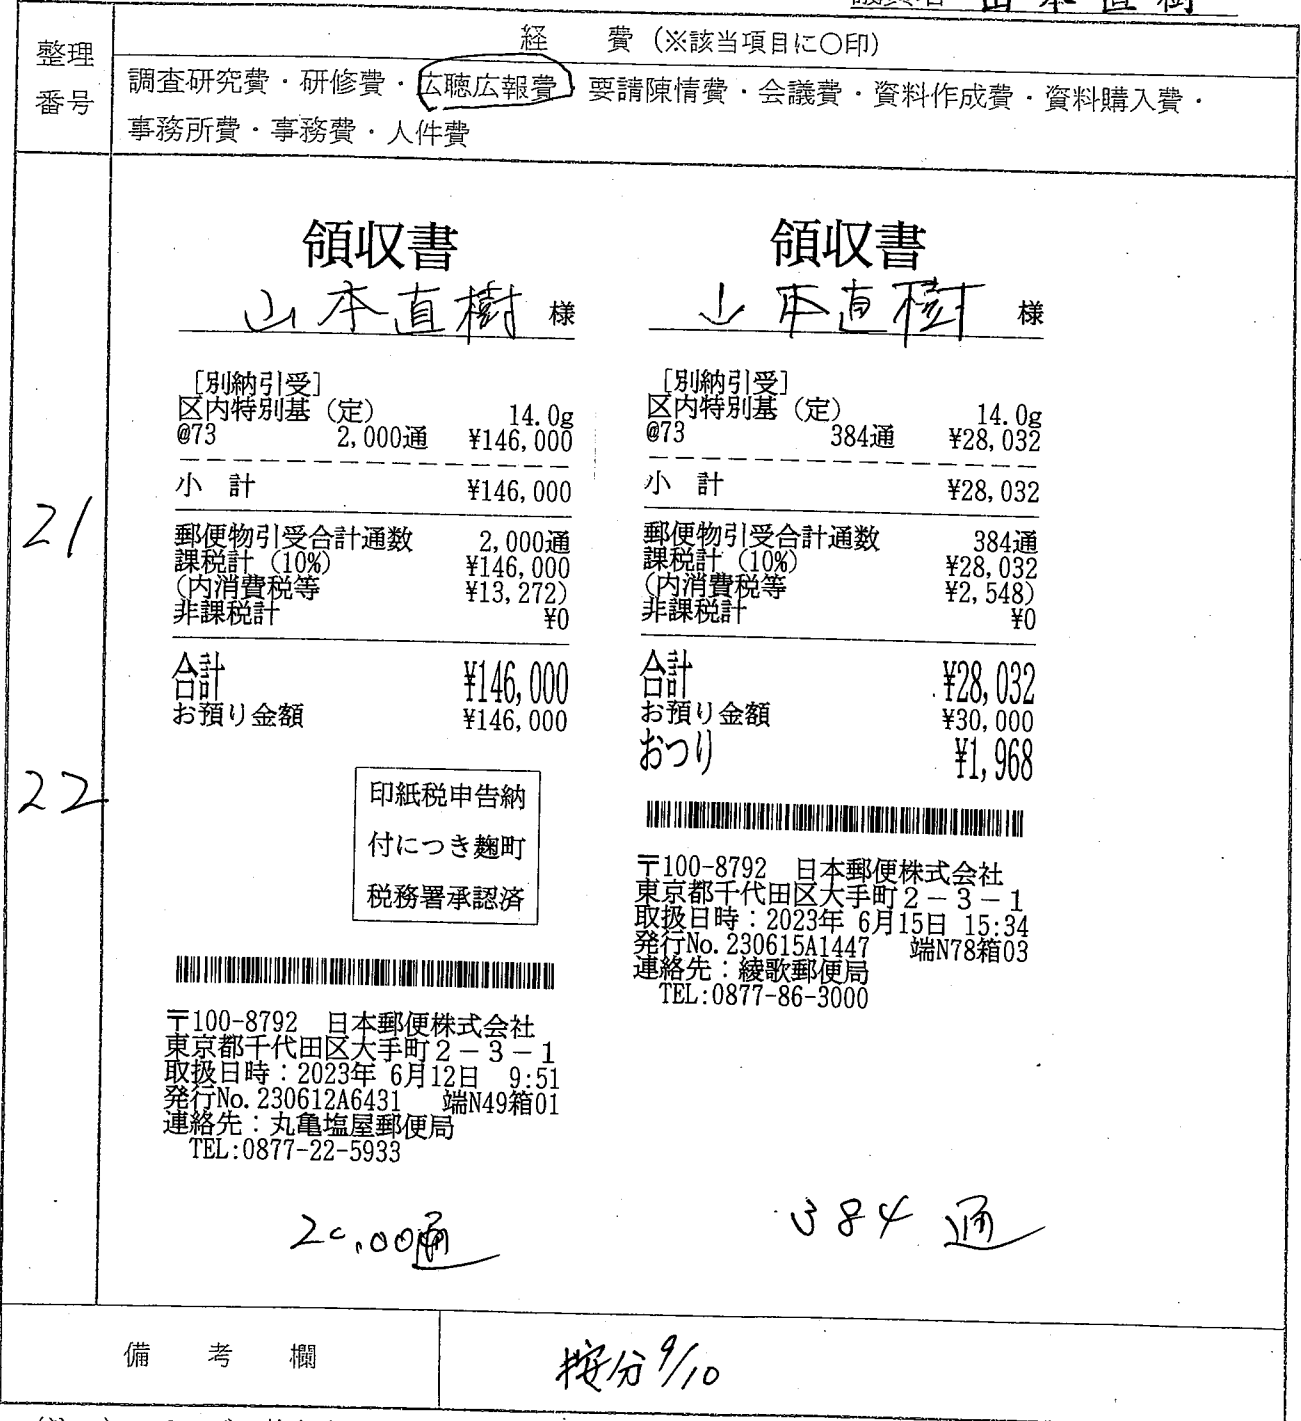 山本直樹
整理
番号
経 費（※該当項目に〇印）
調査研究費・研修費・広聴広報費・要請陳情費・会議費・資料作成費・資料購入費・
事務所費・事務費・人件費
21
22
領収書
山本直樹 様
［別納引受］
区内特別基（定） 14.0g
@73 2,000通 ¥146,000
小 計 ¥146,000
郵便物引受合計通数 2,000通
課税計（10%） ¥146,000
（内消費税等 ¥13,272）
非課税計 ¥0
合計 ¥146,000
お預り金額 ¥146,000
印紙税申告納
付につき麹町
税務署承認済
〒100-8792 日本郵便株式会社
東京都千代田区大手町２－３－１
取扱日時：2023年 6月12日 9:51
発行No.230612A6431 端N49箱01
連絡先：丸亀塩屋郵便局
TEL:0877-22-5933
領収書
山本直樹 様
［別納引受］
区内特別基（定） 14.0g
@73 384通 ¥28,032
小 計 ¥28,032
郵便物引受合計通数 384通
課税計（10%） ¥28,032
（内消費税等 ¥2,548）
非課税計 ¥0
合計 ¥28,032
お預り金額 ¥30,000
おつり ¥1,968
〒100-8792 日本郵便株式会社
東京都千代田区大手町２－３－１
取扱日時：2023年 6月15日 15:34
発行No.230615A1447 端N78箱03
連絡先：綾歌郵便局
TEL:0877-86-3000
20,00通
384通
備 考 欄
按分9/10